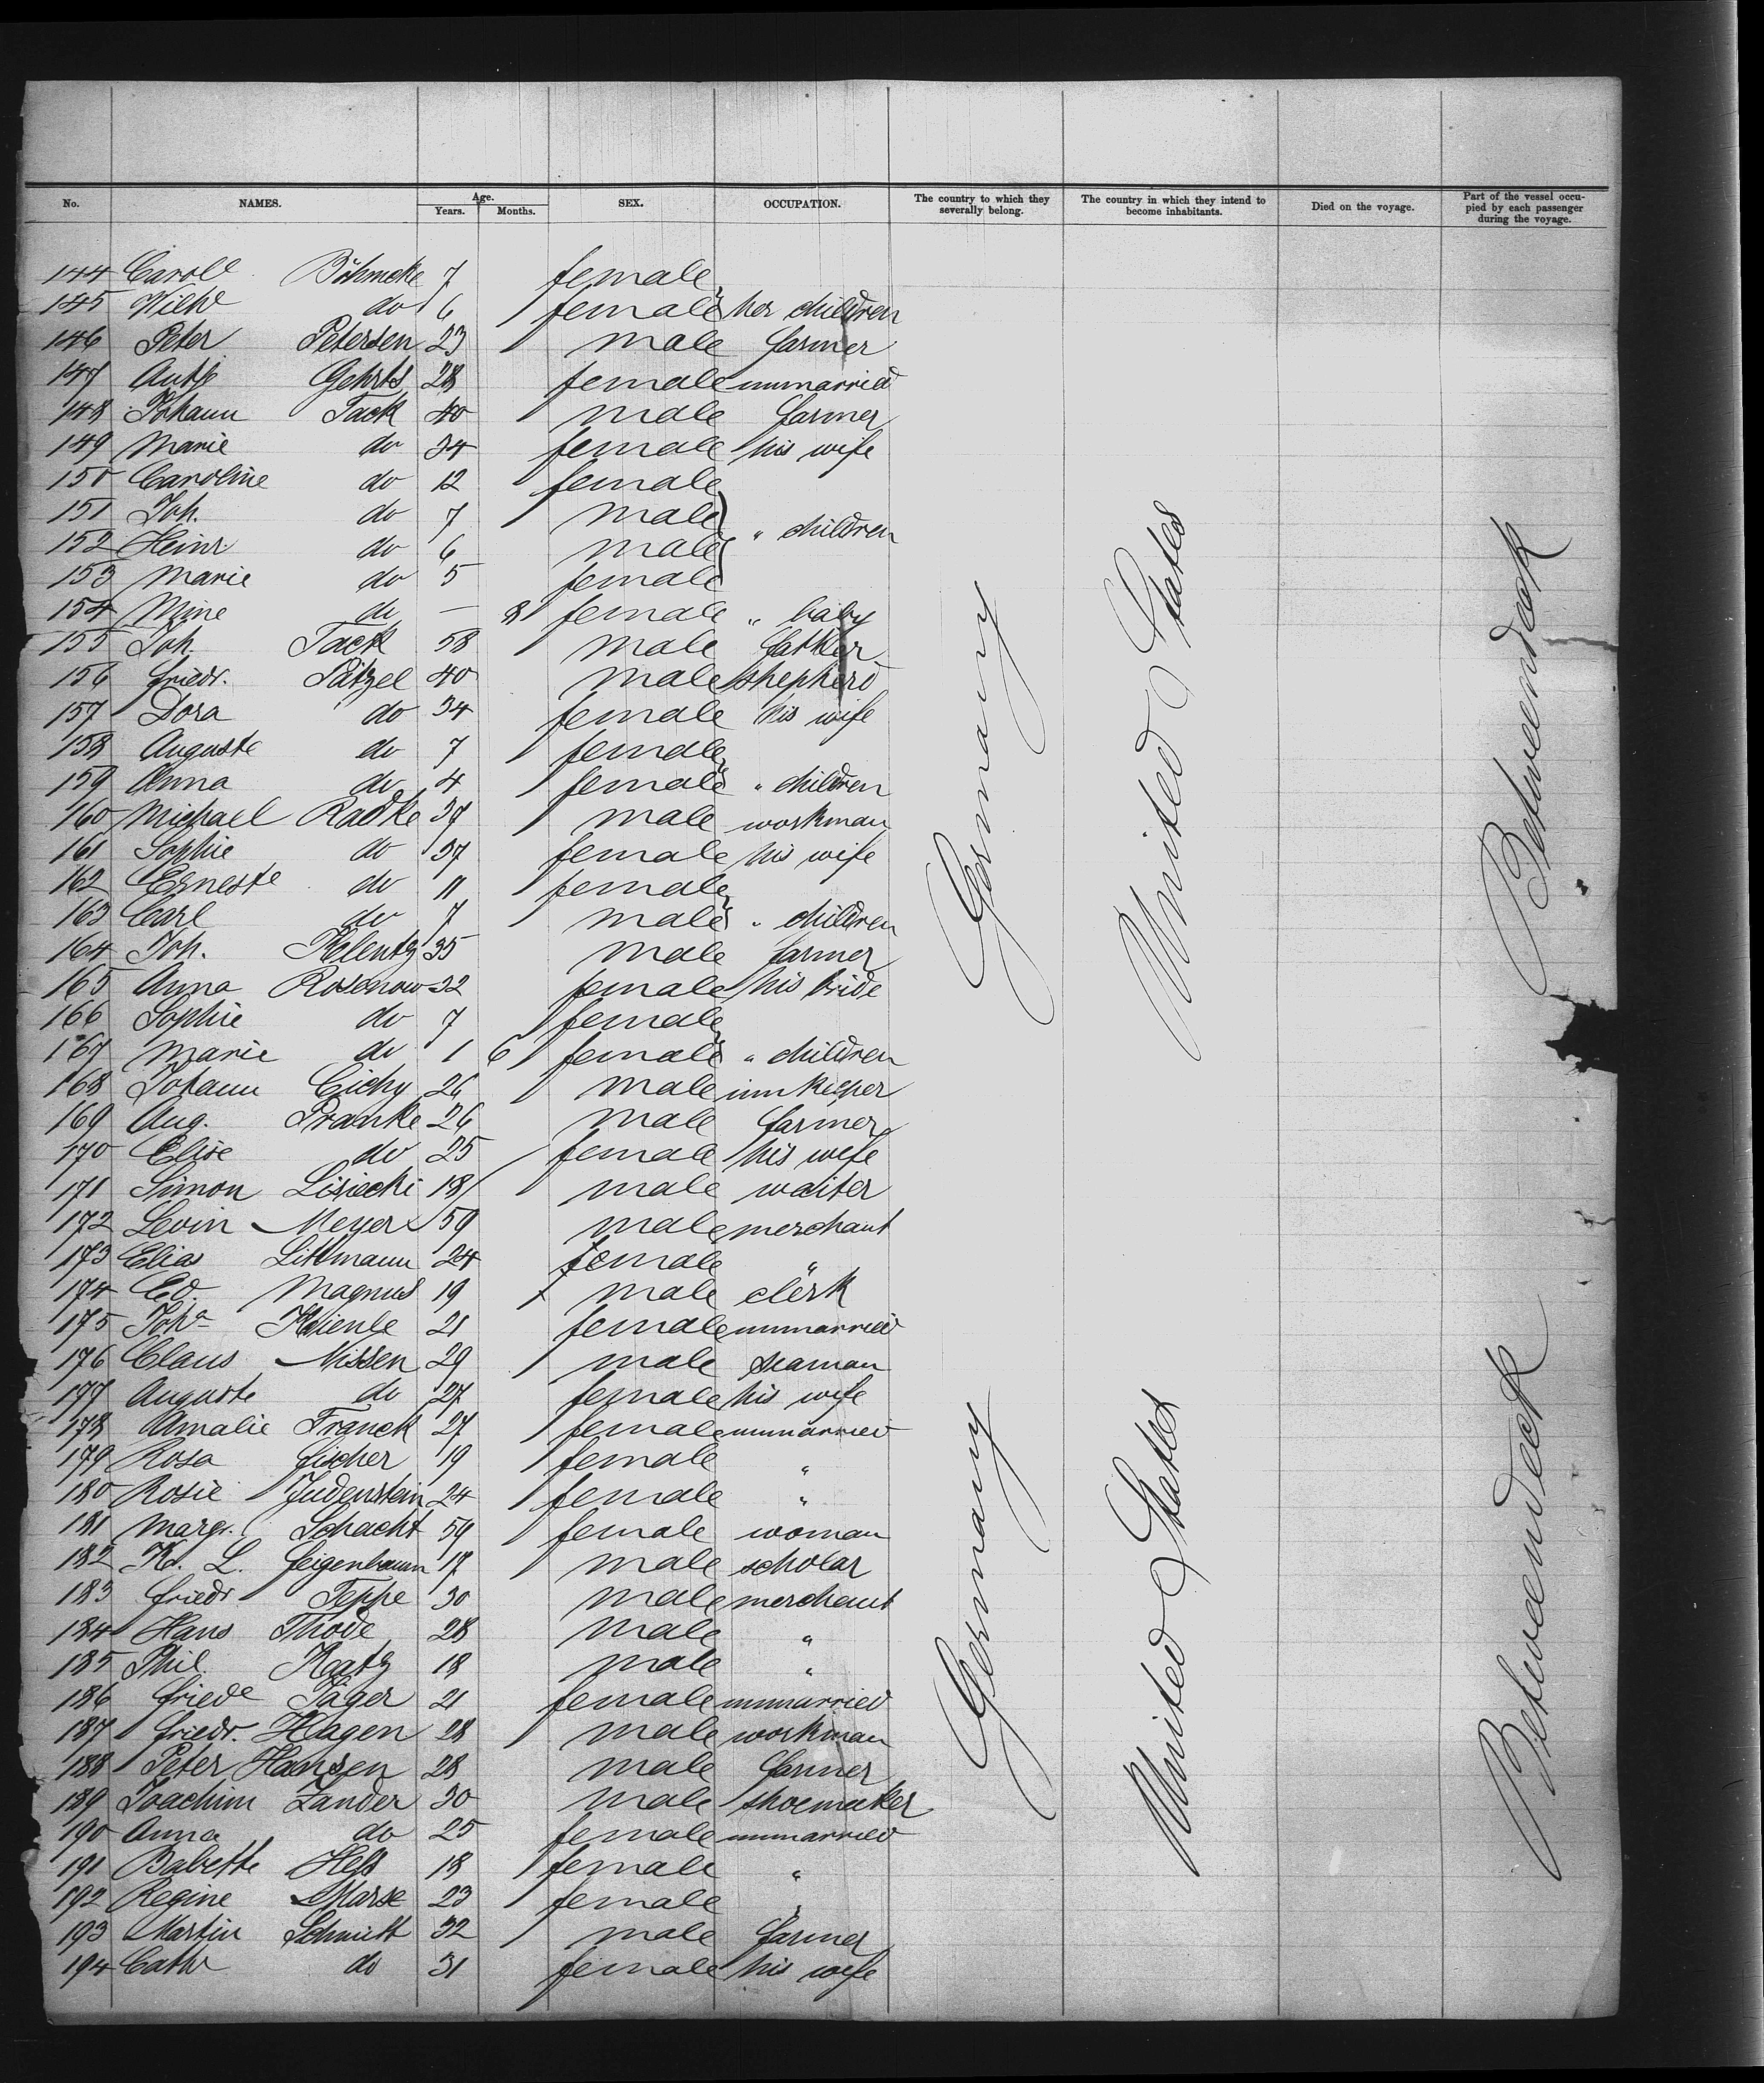 No. NAMES. Age. Years. Months. SEX. OCCUPATION. The country to which they severally belong. The country in which they intend to become inhabitants. Died on the voyage. Part of the vessel occupied by each passenger during the voyage.
144 Caroll Böhmcke 7 female
145 Wilhe do 6 female her children
146 Peter Petersen 23 male farmer
147 Antje Gehrts 28 female unmarried
148 Johann Tack 40 male farmer
149 Marie do 34 female his wife
150 Caroline do 12 female
151 Joh. do 7 male
152 Heinr. do 6 male " children
153 Marie do 5 female
154 Mine do — 8 female " baby
155 Joh. Tack 58 male father
156 Friedr. Pätzel 40 male shepherd
157 Dora do 34 female his wife
158 Auguste do 7 female
159 Anna do 4 female " children
160 Michael Radke 39 male workman
161 Sophie do 37 female his wife
162 Erneste do 11 female
163 Carl do 7 male " children
164 Joh. Klentz 35 male farmer
165 Anna Rosenow 22 female his bride
166 Sophie do 7 female
167 Marie do 1 6 female " children
168 Johann Cichy 26 male innkeeper
169 Aug. Pranke 26 male farmer
170 Elise do 25 female his wife
171 Simon Lisiecki 18 male waiter
172 Levin Meyer 59 male merchant
173 Elias Littmann 24 female "
174 Ed. Magnus 19 male clerk
175 Joha Kienle 21 female unmarried
176 Claus Nissen 29 male seaman
177 Auguste do 27 female his wife
178 Amalie Franck 27 female unmarried
179 Rosa Fischer 19 female "
180 Rosie Judenstein 24 female "
181 Margr. Schacht 59 female woman
182 K. L. Feigenbaum 17 male scholar
183 Friedr Teppe 30 male merchant
184 Hans Thode 28 male "
185 Phil. Katz 18 male "
186 Friede Jäger 21 female unmarried
187 Friedr. Hagen 28 male workman
188 Peter Hansen 28 male farmer
189 Joachim Zander 30 male shoemaker
190 Anna do 25 female unmarried
191 Babette Heß 18 female "
192 Regine Marse 23 female "
193 Martin Schmitt 32 male farmer
194 Cathr do 31 female his wife
Germany
United States
Betweendeck
Germany
United States
Betweendeck